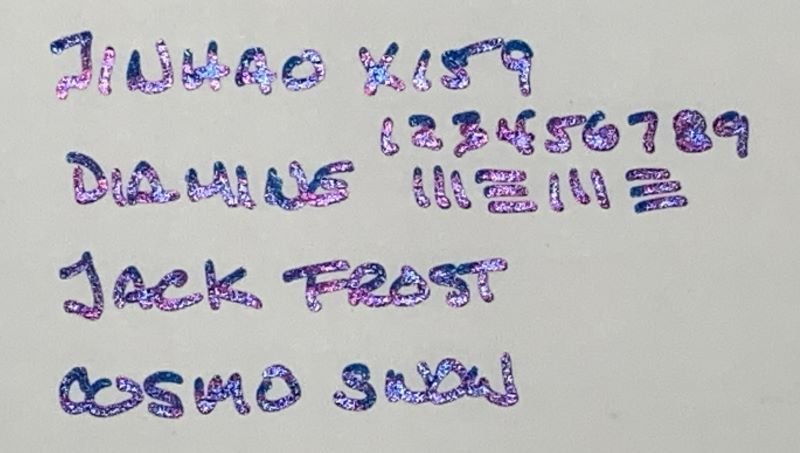 JINHAO X159
123456789
DIAMINE
JACK FROST
COSMO SNOW